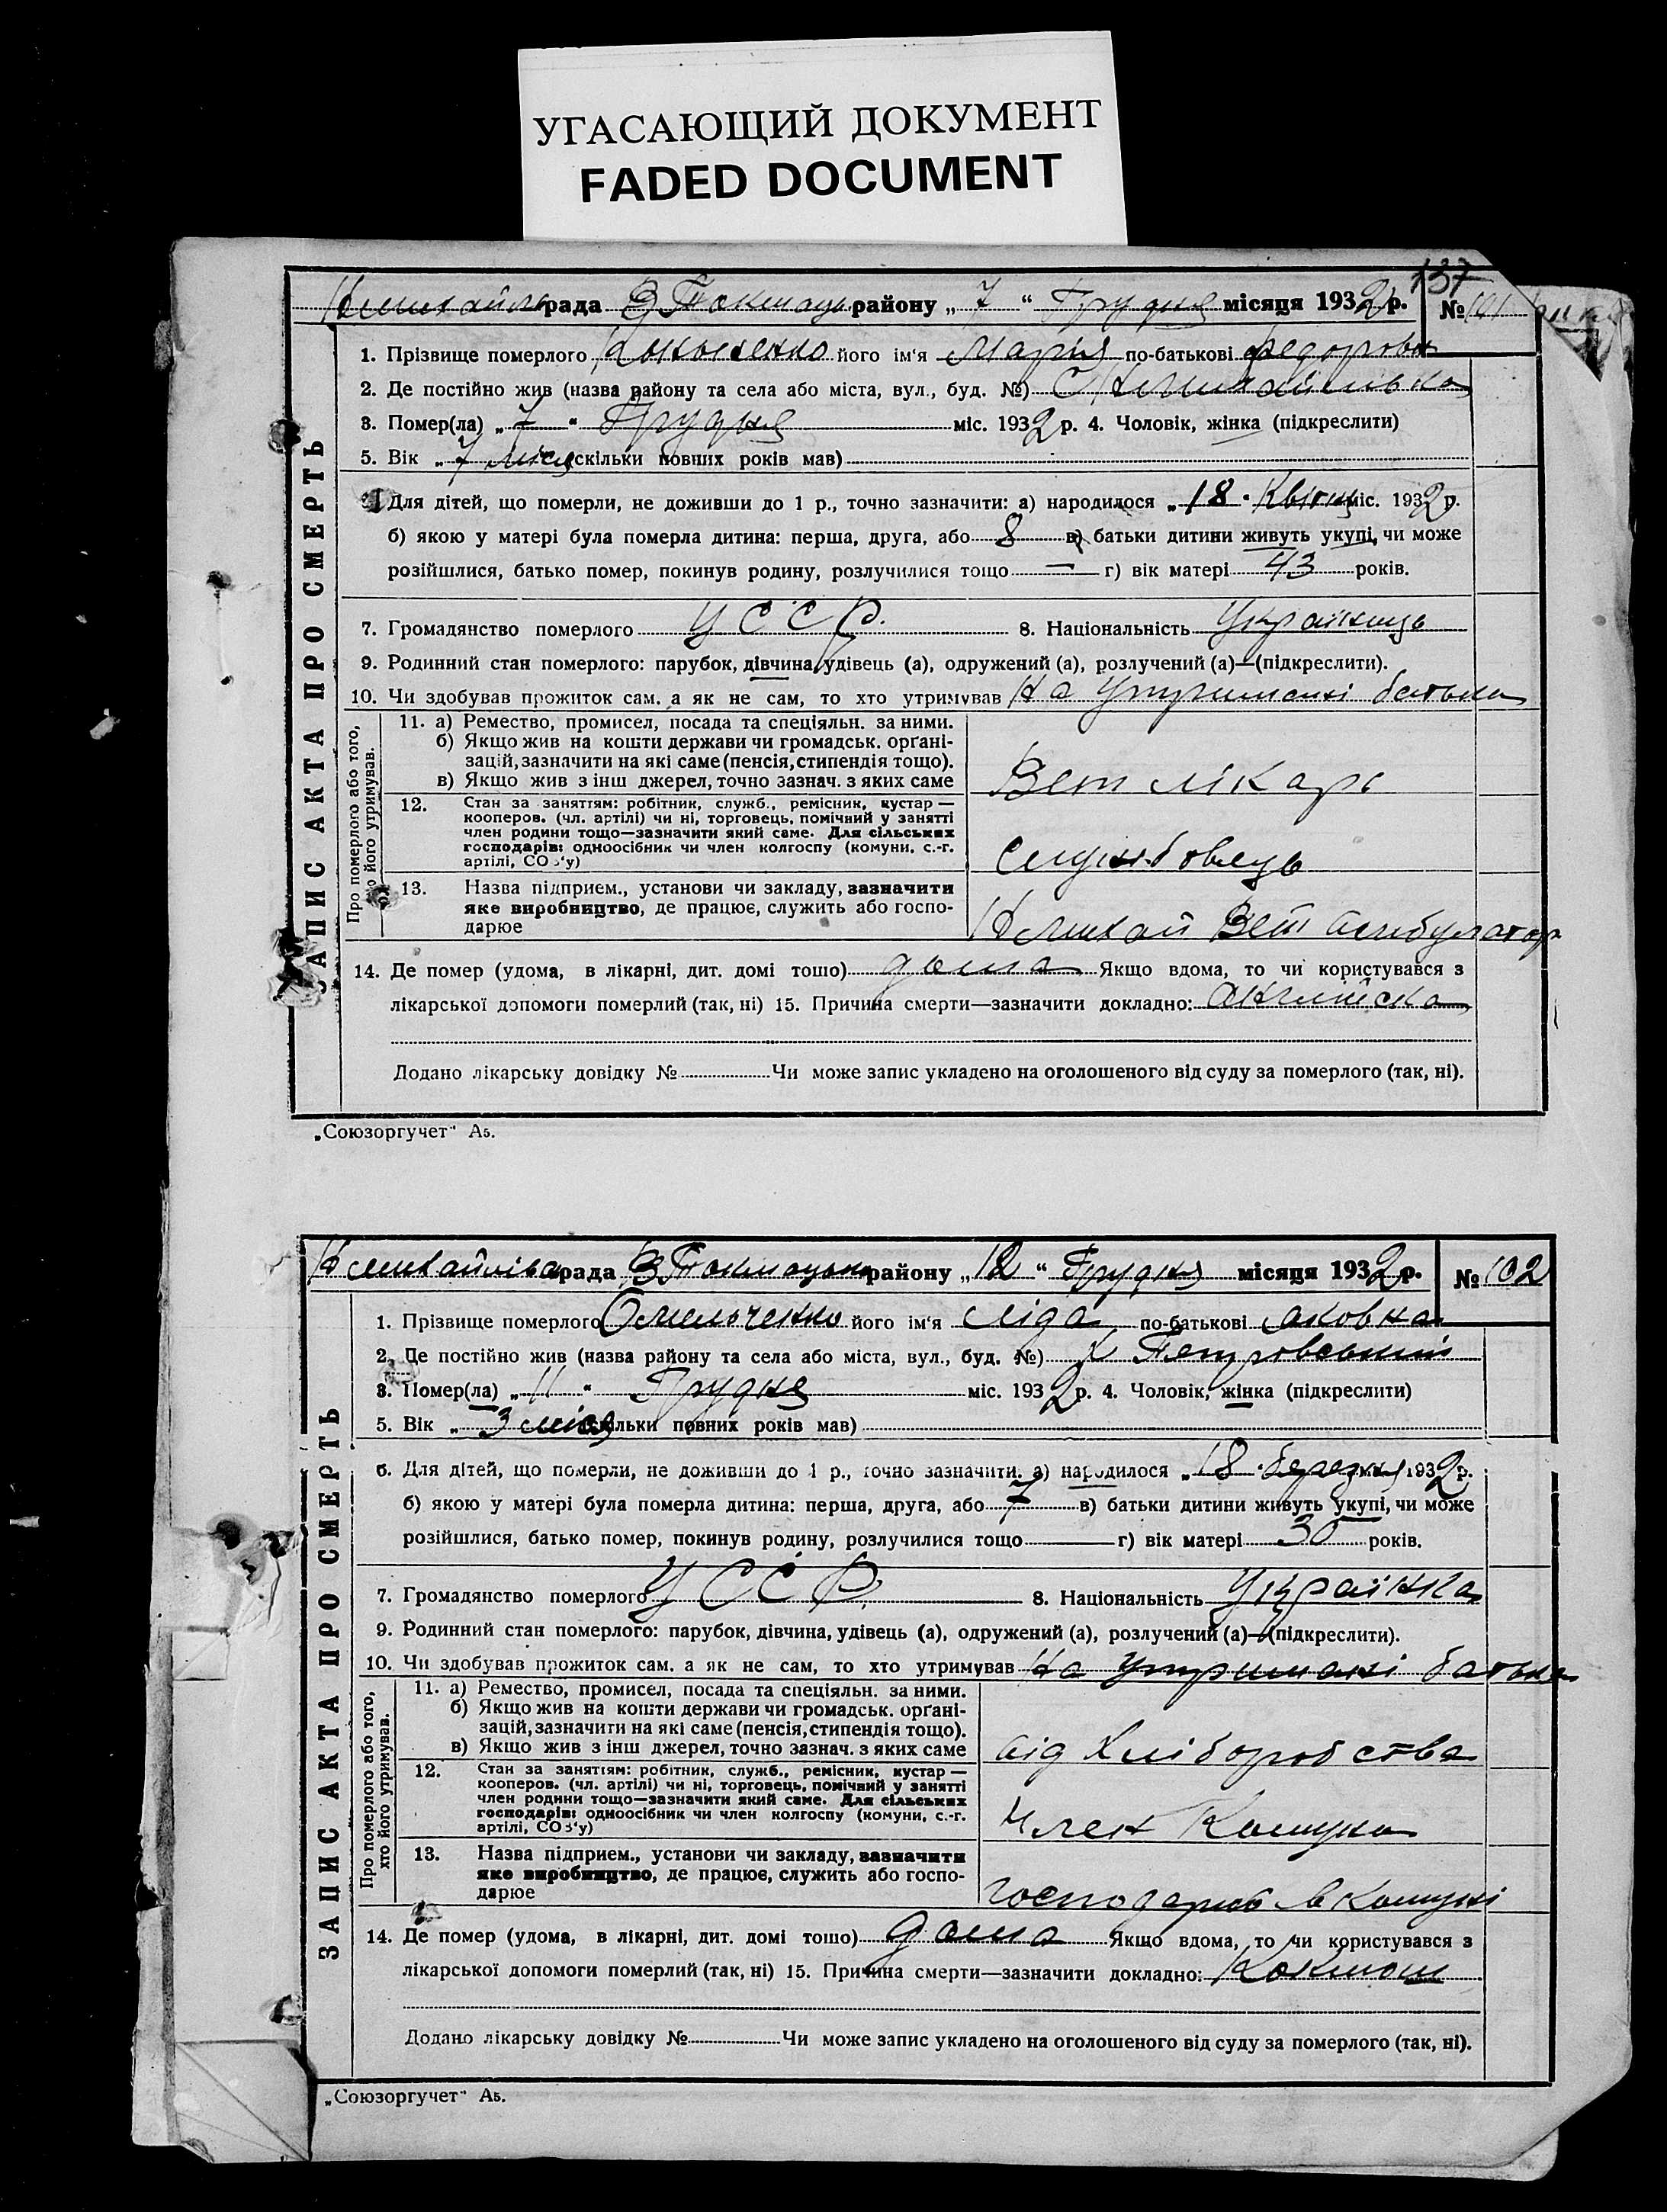 УГАСАЮЩИЙ ДОКУМЕНТ
FADED DOCUMENT
137
рада В Токмацьк району „ 7 “ Грудня місяця 1932 р. № 101
1. Прізвище померлого його ім'я Марія по-батькові Федоровн
2. Де постійно жив (назва району та села або міста, вул., буд. №) С
3. Помер(ла) „ 7 “ Грудня міс. 1932 р. 4. Чоловік, жінка (підкреслити)
5. Вік „ 7 місяц (скільки повних років мав)
Для дітей, що померли, не доживши до 1 р., точно зазначити: а) народилося „ 18 “ Квітня міс. 1932 р.
б) якою у матері була померла дитина: перша, друга, або 8 в) батьки дитини живуть укупі, чи може
розійшлися, батько помер, покинув родину, розлучилися тощо — г) вік матері 43 років.
7. Громадянство померлого УССР. 8. Національність Українець
9. Родинний стан померлого: парубок, дівчина, удівець (а), одружений (а), розлучений (а)—(підкреслити).
10. Чи здобував прожиток сам, а як не сам, то хто утримував На Утриманні батька
ЗАПИС АКТА ПРО СМЕРТЬ
Про померлого або того,
хто його утримував.
11. а) Ремество, промисел, посада та спеціяльн. за ними.
б) Якщо жив на кошти держави чи громадськ. орґані-
зацій, зазначити на які саме (пенсія, стипендія тощо).
в) Якщо жив з інш джерел, точно зазнач. з яких саме
Вет лікарь
12. Стан за заняттям: робітник, служб., ремісник, кустар —
кооперов. (чл. артілі) чи ні, торговець, помічний у занятті
член родини тощо—зазначити який саме. Для сільських
господарів: одноосібник чи член колгоспу (комуни, с.-г.
артілі, СОЗ'у)
служ
бовець
13. Назва підприєм., установи чи закладу, зазначити
яке виробництво, де працює, служить або госпо-
дарює
Н михай Вет амбулатор
14. Де помер (удома, в лікарні, дит. домі тощо) дома Якщо вдома, то чи користувався з
лікарської допомоги померлий (так, ні) 15. Причина смерти—зазначити докладно:
Додано лікарську довідку № Чи може запис укладено на оголошеного від суду за померлого (так, ні).
„Союзоргучет“ А5.
Н михайлівка рада В Токмацьк району „ 12 “ Грудня місяця 1932 р. № 102
1. Прізвище померлого Омельченко його ім'я Ліда по-батькові аковна
2. Де постійно жив (назва району та села або міста, вул., буд. №) х Петровський
3. Помер(ла) „ 11 “ Грудня міс. 1932 р. 4. Чоловік, жінка (підкреслити)
5. Вік „ 3 місяц (скільки повних років мав)
6. Для дітей, що померли, не доживши до 1 р., точно зазначити: а) народилося „ 18 “ березня міс. 1932 р.
б) якою у матері була померла дитина: перша, друга, або 7 в) батьки дитини живуть укупі, чи може
розійшлися, батько помер, покинув родину, розлучилися тощо г) вік матері 30 років.
7. Громадянство померлого УССР. 8. Національність Українка
9. Родинний стан померлого: парубок, дівчина, удівець (а), одружений (а), розлучений (а)—(підкреслити).
10. Чи здобував прожиток сам, а як не сам, то хто утримував На Утриманні батька
ЗАПИС АКТА ПРО СМЕРТЬ
Про померлого або того,
хто його утримував.
11. а) Ремество, промисел, посада та спеціяльн. за ними.
б) Якщо жив на кошти держави чи громадськ. орґані-
зацій, зазначити на які саме (пенсія, стипендія тощо).
в) Якщо жив з інш джерел, точно зазнач. з яких саме
від хліборобства
12. Стан за заняттям: робітник, служб., ремісник, кустар —
кооперов. (чл. артілі) чи ні, торговець, помічний у занятті
член родини тощо—зазначити який саме. Для сільських
господарів: одноосібник чи член колгоспу (комуни, с.-г.
артілі, СОЗ'у)
Член Комуни
13. Назва підприєм., установи чи закладу, зазначити
яке виробництво, де працює, служить або госпо-
дарює
господарює в комуні
14. Де помер (удома, в лікарні, дит. домі тощо) дома Якщо вдома, то чи користувався з
лікарської допомоги померлий (так, ні) 15. Причина смерти—зазначити докладно: Коклюш
Додано лікарську довідку № Чи може запис укладено на оголошеного від суду за померлого (так, ні).
„Союзоргучет“ А5.